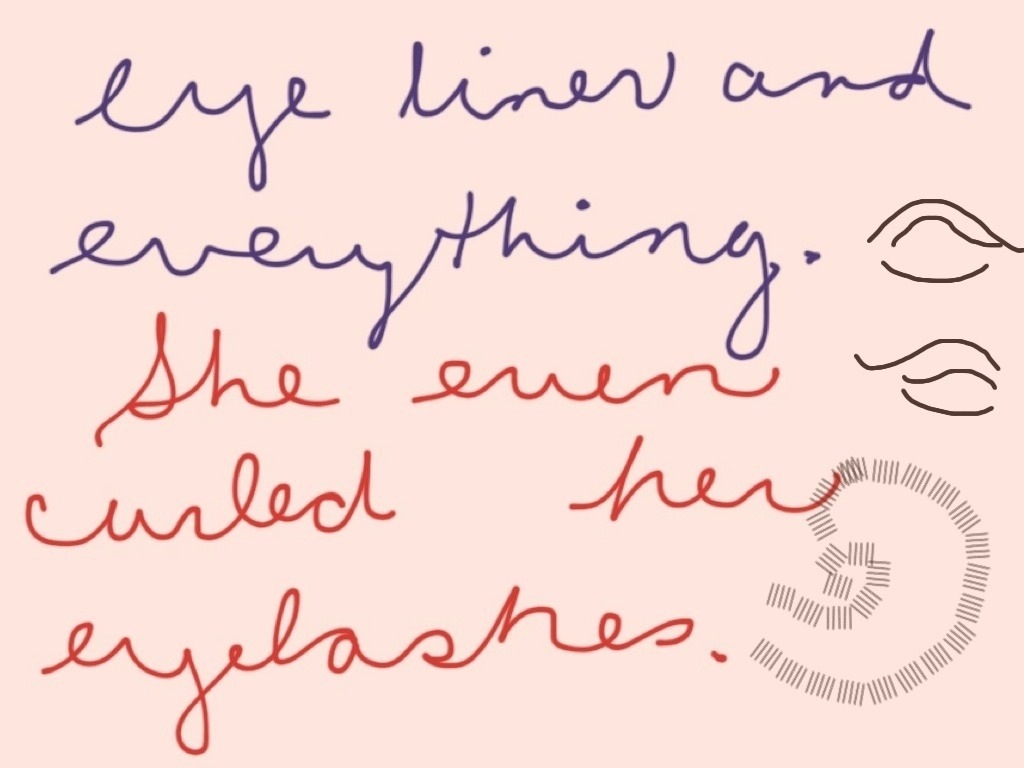 eye liner and
everything.
She even
curled her
eyelashes.